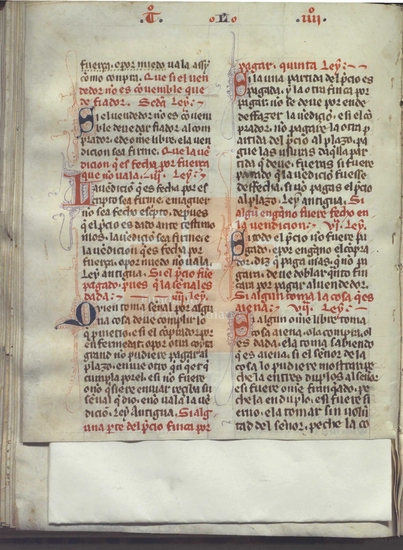 T. oLo .IIII
fuerça. o por miedo uala assy
como compra. Que si el uen
dedor no es couenible que
de fiador. Seda Ley:
Si el uendedor no es conuen
ble deue dar fiador al com
prador. e deome libre. e la uen
dicion sea firme. Que la uen
dicion que es fecha por fuerça
que no uala. III. Ley:
La uendicion que es fecha por es
cripto sea firme. e maguer
no sea fecho escripto. depues
que el precio es dado ante testimo
nios. la uendicion sea firme. e
la uendicion que es fecha por
fuerça. o por miedo no uala.
Ley antigua. Si el precio fue
pagado. pues que la sennal es
dada: IIII. Ley:
Qui toma sennal por algu
na cosa deue complir lo
que prometio. e si el comprador por
enfermedat. o por otra coyta
grand no pudiere pagar al
plazo. enuie otro que
cumpla por el. e si no fuere
sennal que dio. e no uala la uen
dicion. Ley Antigua. Si algu
na parte del precio finca por
pagar. quinta Ley:
Si la una partida del precio es
pagada. y la otra finca por
pagar. no se deue por ende
desfazer la uendicion. e si el com
prador. no pagare la otra p
artida del precio al plazo. pa
gue las usuras daquella par
tida que deue. fueras si fuere
parado que la uendicion fuesse
desfecha. si no pagas el precio
al plazo. Ley antigua. Si
algun enganno fuere fecho en
la uendicion: VI. Ley:
Si todo el precio no fuere pa
gado. e por enganno el compra
dor. diz que paga mas. que no pa
gara. deue doblar quanto fin
cara por pagar al uendedor.
Si algun toma la cosa que es
aiena: VII. Ley:
Si algun omne libre toma
cosa aiena. o la compra. o l
es dada. e la toma sabiendo
que es aiena. si el sennor de la
cosa lo pudiere mostrar. pe
che la en tres duplos al sennor
si fuere omne franqueado. pe
che la en duplo. e si fuere si
eruo. e la tomar sin uolun
tad del sennor. peche la co